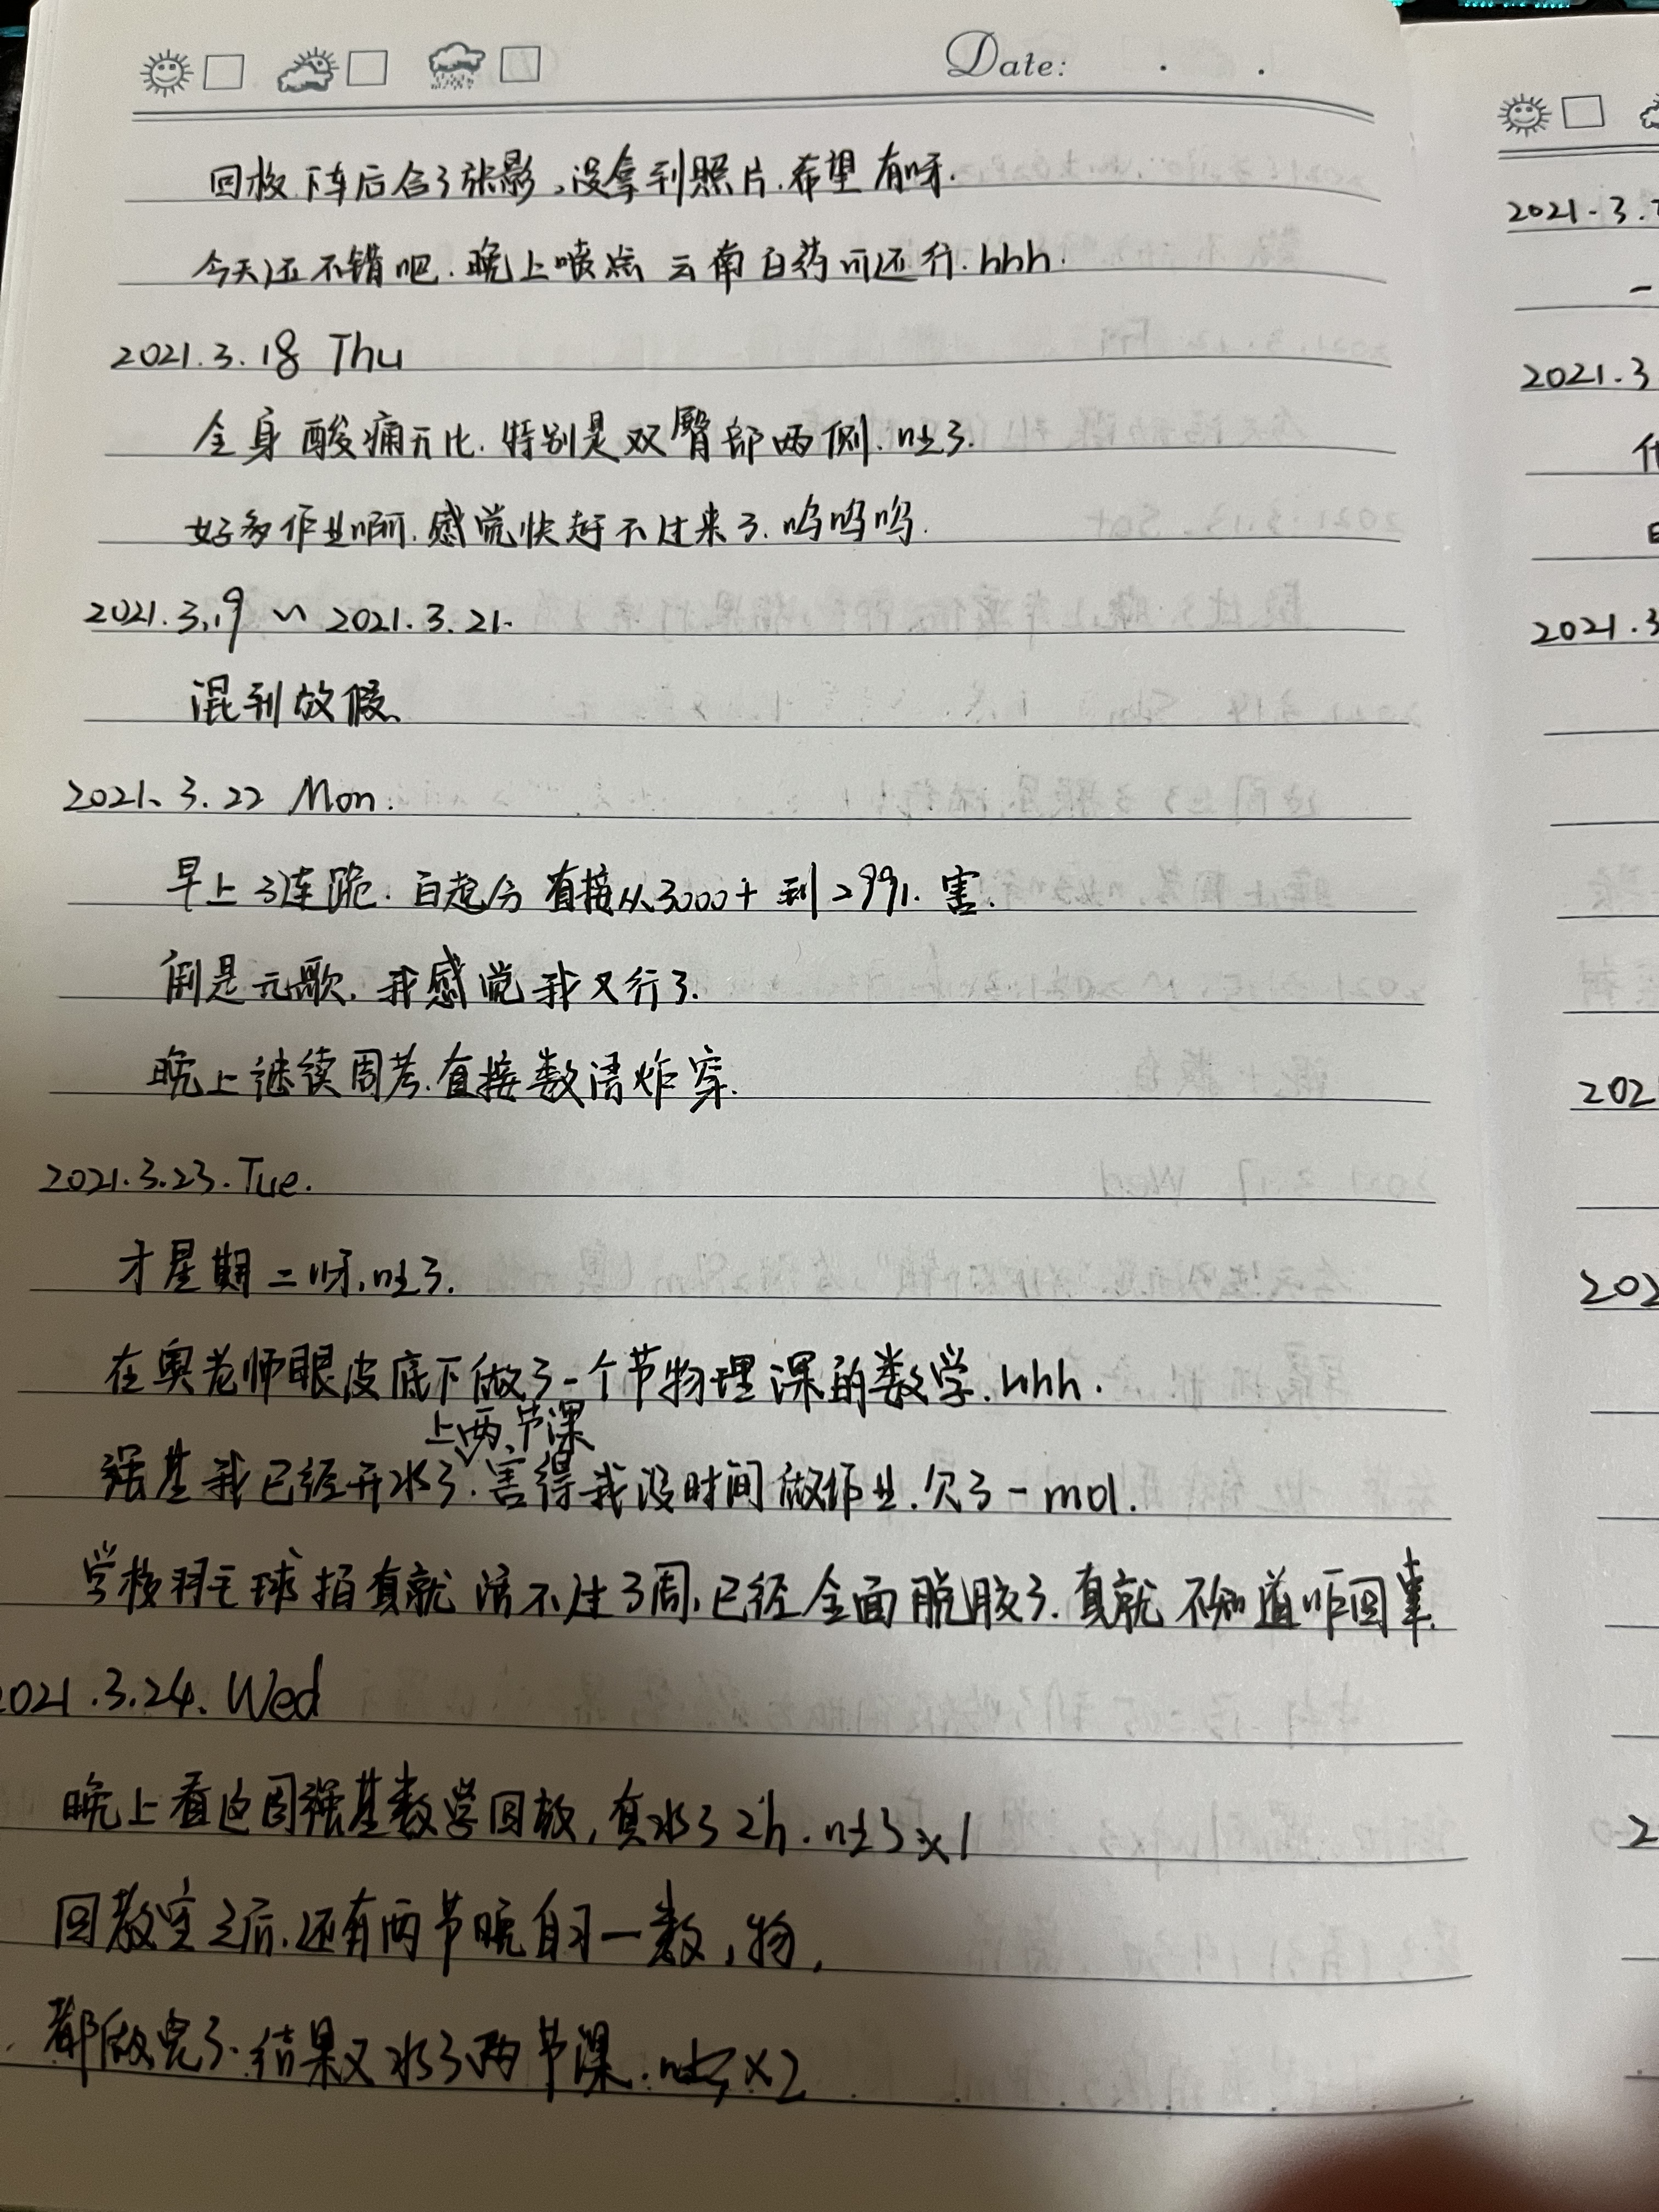 Date: . .
回校下车后合了张影,没拿到照片.希望有呀.
今天还不错吧.晚上喷点云南白药可还行.hhh.
2021.3.18 Thu
全身酸痛无比.特别是双臀部两侧.吐了.
好多作业啊.感觉快赶不过来了.呜呜呜.
2021.3.19 ~ 2021.3.21.
混到放假.
2021.3.22 Mon.
早上3连跪.白起分直接从3000+到2991.害.
倒是元歌.我感觉我又行了.
晚上继续周考.直接数语炸穿.
2021.3.23.Tue.
才星期二呀.吐了.
在奥老师眼皮底下做了一个节物理课的数学.hhh.
上两节课
强基我已经开水了.害得我没时间做作业.欠了一mol.
学校羽毛球拍真就活不过3周.已经全面脱胶了.真就不知道咋回事.
2021.3.24. Wed
晚上看这周强基数学回放,真水了2h.吐了×1
回教室之后.还有两节晚自习一数,物,
都做完了.结果又水了两节课.吐了×2
2021.3.
2021.3
2021.3
202
202
2